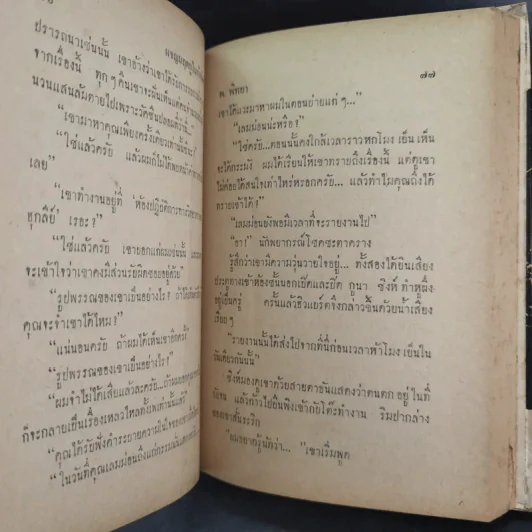 ปรารถนาเช่นนั้น เขาอ้างว่าเขาได้รับการ
จากเรื่องนี้ ทุกๆคืนเขาจะฝันเห็นแต่คน
นวนแสนล้มตายไปเพราะวัคซีนปลอมที่ว่านี้"
"เขามาหาคุณเพียงครั้งเดียวเท่านั้นหรือ?"
"ใช่แล้วครับ แล้วผมก็ไม่ได้พบหน้า
เลย"
"เขาทำงานอยู่ที่ 'ห้องปฏิบัติการทาง
ฮุกลีย์' เรอะ?"
"ใช่แล้วครับ เขาบอกแต่ผมเช่นนั้น
จะเข้าใจว่าเขาคงมีส่วนรับผิดชอบอยู่ด้วย"
"รูปพรรณของเขาเป็นอย่างไร? ถ้า
คุณจะจำเขาได้ไหม?"
"แน่นอนครับ ถ้าผมได้เห็นเขาอีกครั้ง"
"รูปพรรณของเขาเป็นอย่างไร?"
"ผมจำไม่ได้เสียแล้วละครับ...ถ้าผม
ก็จะกลายเป็นเรื่องเหลวไหลทั้งเพเท่านั้นแหละ"
"คุณได้รับฟังคำระบายความในใจของเขา
"ในวันที่คุณเลมม่อนถึงแก่กรรมนั้น
พ. พิทยา
๗๗
เขาได้แวะมาหาผมในตอนบ่ายแก่ๆ..."
"เลมม่อนน่ะหรือ?"
"ใช่ครับ...ตอนนั้นคงใกล้เวลาราวหกโมงเย็นเห็น
จะได้กระมัง ผมได้เรียนให้เขาทราบถึงเรื่องนี้ แต่ดูเขา
ไม่ค่อยได้สนใจเท่าไหร่หรอกครับ... แล้วทำไมคุณถึงได้
ทราบเขาได้?"
"เลมม่อนยังพอมีเวลาที่จะรายงานไป"
"อา!" นักพยากรณ์โชคชะตาคราง
รู้สึกว่าเขามีความวุ่นวายใจอยู่... ทั้งสองได้ยินเสียง
ประตูทางเข้าห้องชั้นนอกเปิดและปิด กูนา ซิงห์ ทำหูผึ่ง
อยู่เป็นครู่ ครั้นแล้วฮิวแบร์ตจึงกล่าวขึ้นด้วยน้ำเสียง
เรียบๆ
"รายงานนั้นได้ส่งไปจากที่นี่ก่อนเวลาห้าโมงเย็นใน
วันเดียวกันนั้น"
ซิงห์มองดูเขาด้วยสายตาอันแสดงว่าตนตกอยู่ในที่
คับขัน แล้วก้าวไปยืนพิงเข้ากับโต๊ะทำงาน ริมฝีปากล่าง
ของเขาสั่นระริก
"ผมอยากรู้นักว่า..." เขาเริ่มพูด